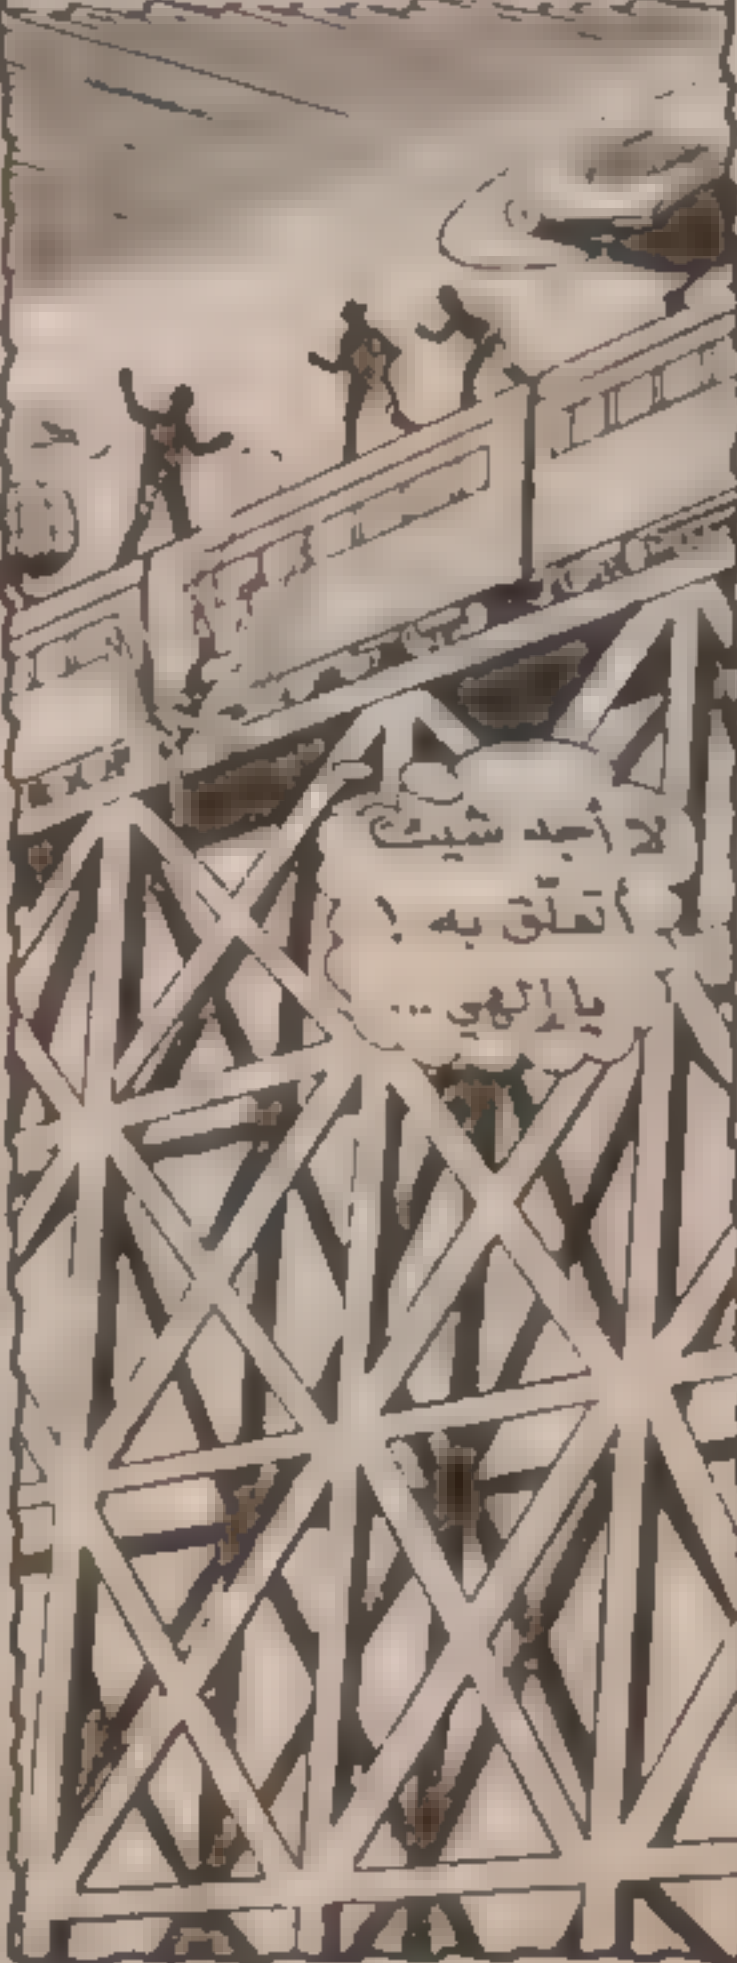 لا أجد شيئـًا
أتعلّق به !
يا إلهي ...